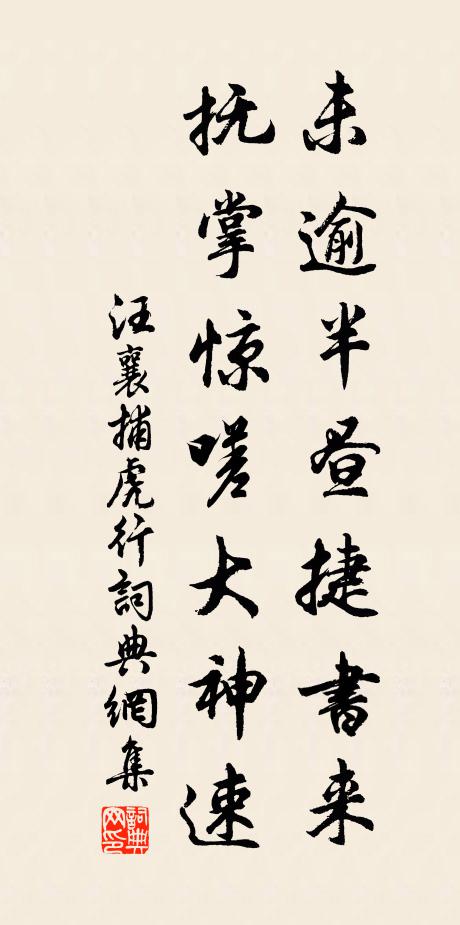 未逾半昼捷書来
抚掌惊嗟大神速
汪襄捕虎行詞典網集
詞典网印